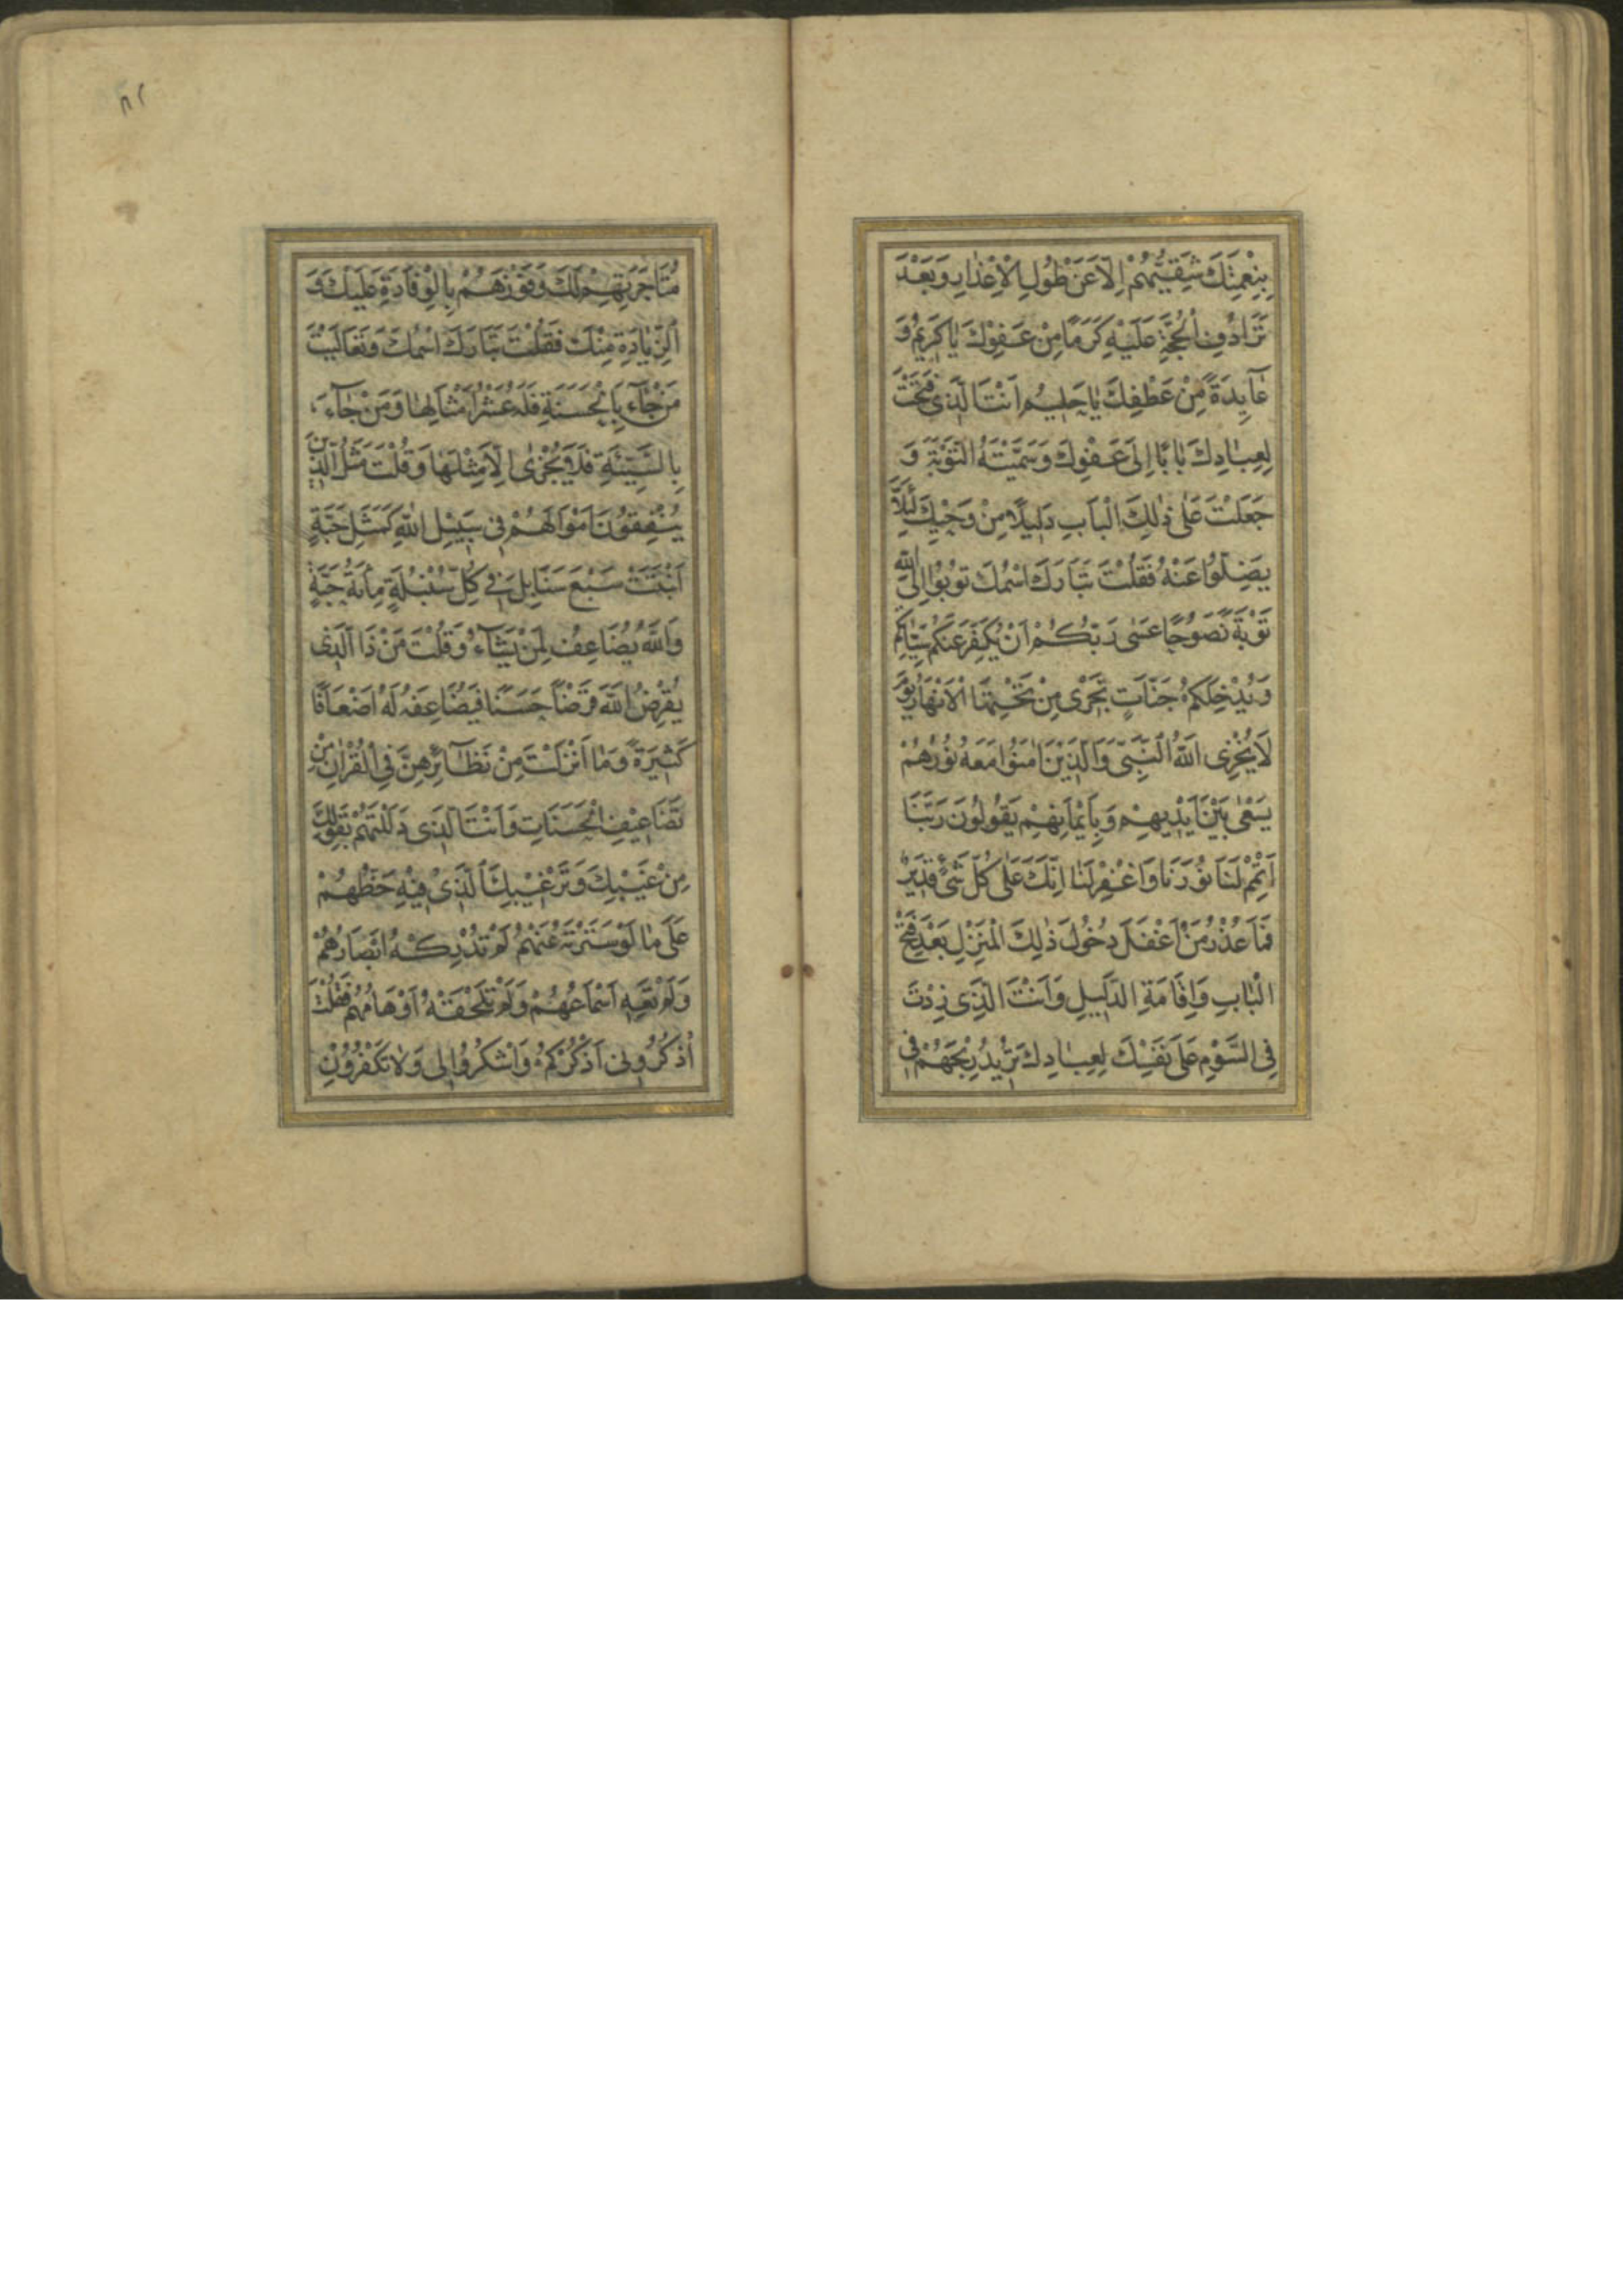 بِنِعْمَتِكَ شَقِيُّهُمْ اِلّا عَنْ طُولِ الْاِعْذارِ وَبَعْدَ
تَرَادُفِ الْحُجَّةِ عَلَيْهِ كَرَمًا مِنْ عَفْوِكَ يا كَرِيمُ وَ
عآيِدَةً مِنْ عَطْفِكَ يا حَلِيمُ اَنْتَ الَّذى فَتَحْتَ
لِعِبادِكَ بابًا اِلى عَفْوِكَ وَسَمَّيْتَهُ التَّوْبَةَ وَ
جَعَلْتَ عَلى ذٰلِكَ الْبابِ دَلِيلًا مِنْ وَحْيِكَ لِئَلَّا
يَضِلّوُا عَنْهُ فَقُلْتَ تَبَارَكَ اسْمُكَ توُبوُا اِلَى اللّٰهِ
تَوْبَةً نَصوُحًا عَسى رَبُّكُمْ اَنْ يُكَفِّرَ عَنْكُمْ سَيِّاتِكُمْ
وَيُدْخِلَكُمْ جَنّاتٍ تَجْرى مِنْ تَحْتِهَا الْاَنْهارُ يَوْمَ
لَا يُخْزِى اللّٰهُ النَّبِىَّ وَالَّذينَ اٰمَنوُا مَعَهُ نوُرُهُمْ
يَسْعٰى بَيْنَ اَيْديهِمْ وَبِاَيْمانِهِمْ يَقوُلوُنَ رَبَّنَا
اَتْمِمْ لَنَا نوُرَنَا وَاغْفِرْ لَنا اِنَّكَ عَلى كُلِّ شَىْءٍ قَديرٌ
فَمَا عُذْرُ مَنْ اَغْفَلَ دُخوُلَ ذٰلِكَ الْمَنْزِلِ بَعْدَ فَتْحِ
الْبَابِ وَاِقَامَةِ الدَّليلِ وَاَنْتَ الَّذِى زِدْتَ
فِى السَّوْمِ عَلى نَفْسِكَ لِعِبادِكَ تُريدُ رِبْحَهُمْ فى
٨٢
مُتَاجَرَتِهِمْ لَكَ وَفَوْزَهُمْ بِالْوِفادَةِ عَلَيْكَ وَ
الزِّيادَةِ مِنْكَ فَقُلْتَ تَبَارَكَ اسْمُكَ وَتَعَالَيْتَ
مَنْ جآءَ بِالْحَسَنَةِ فَلَهُ عَشْرُ اَمْثالِها وَمَنْ جآءَ
بِالسَّيِّئَةِ فَلا يُجْزىٰ اِلّا مِثْلَها وَقُلْتَ مَثَلُ الَّذينَ
يُنْفِقوُنَ اَمْوالَهُمْ فى سَبيلِ اللّٰهِ كَمَثَلِ حَبَّةٍ
اَنْبَتَتْ سَبْعَ سَنَابِلَ فى كُلِّ سُنْبُلَةٍ مِاَئةُ حَبَّةٍ
وَاللّٰهُ يُضَاعِفُ لِمَنْ يَشآءُ وَقُلْتَ مَنْ ذَا الَّذى
يُقْرِضُ اللّٰهَ قَرْضًا حَسَنًا فَيُضَاعِفَهُ لَهُ اَضْعَافًا
كَثيرَةً وَمَا اَنْزَلْتَ مِنْ نَظآئِرِهِنَّ فِى الْقُرْانِ مِنْ
تَضَاعيفِ الْحَسَنَاتِ وَاَنْتَ الَّذى دَلَلْتَهُمْ بِقَوْلِكَ
مِنْ غَيْبِكَ وَتَرْغيبِكَ الَّذى فيهِ حَظُّهُمْ
عَلى ما لَوْ سَتَرْتَهُ عَنْهُمْ لَمْ تُدْرِكْهُ اَبْصَارُهُمْ
وَلَمْ تَعِهِ اَسْماعُهُمْ وَلَمْ تَلْحَقْهُ اَوْهَامُهُمْ فَقُلْتَ
اُذْكُرُونى اَذْكُرْكُمْ وَاشْكُرُوا لى وَلا تَكْفُرُونِ